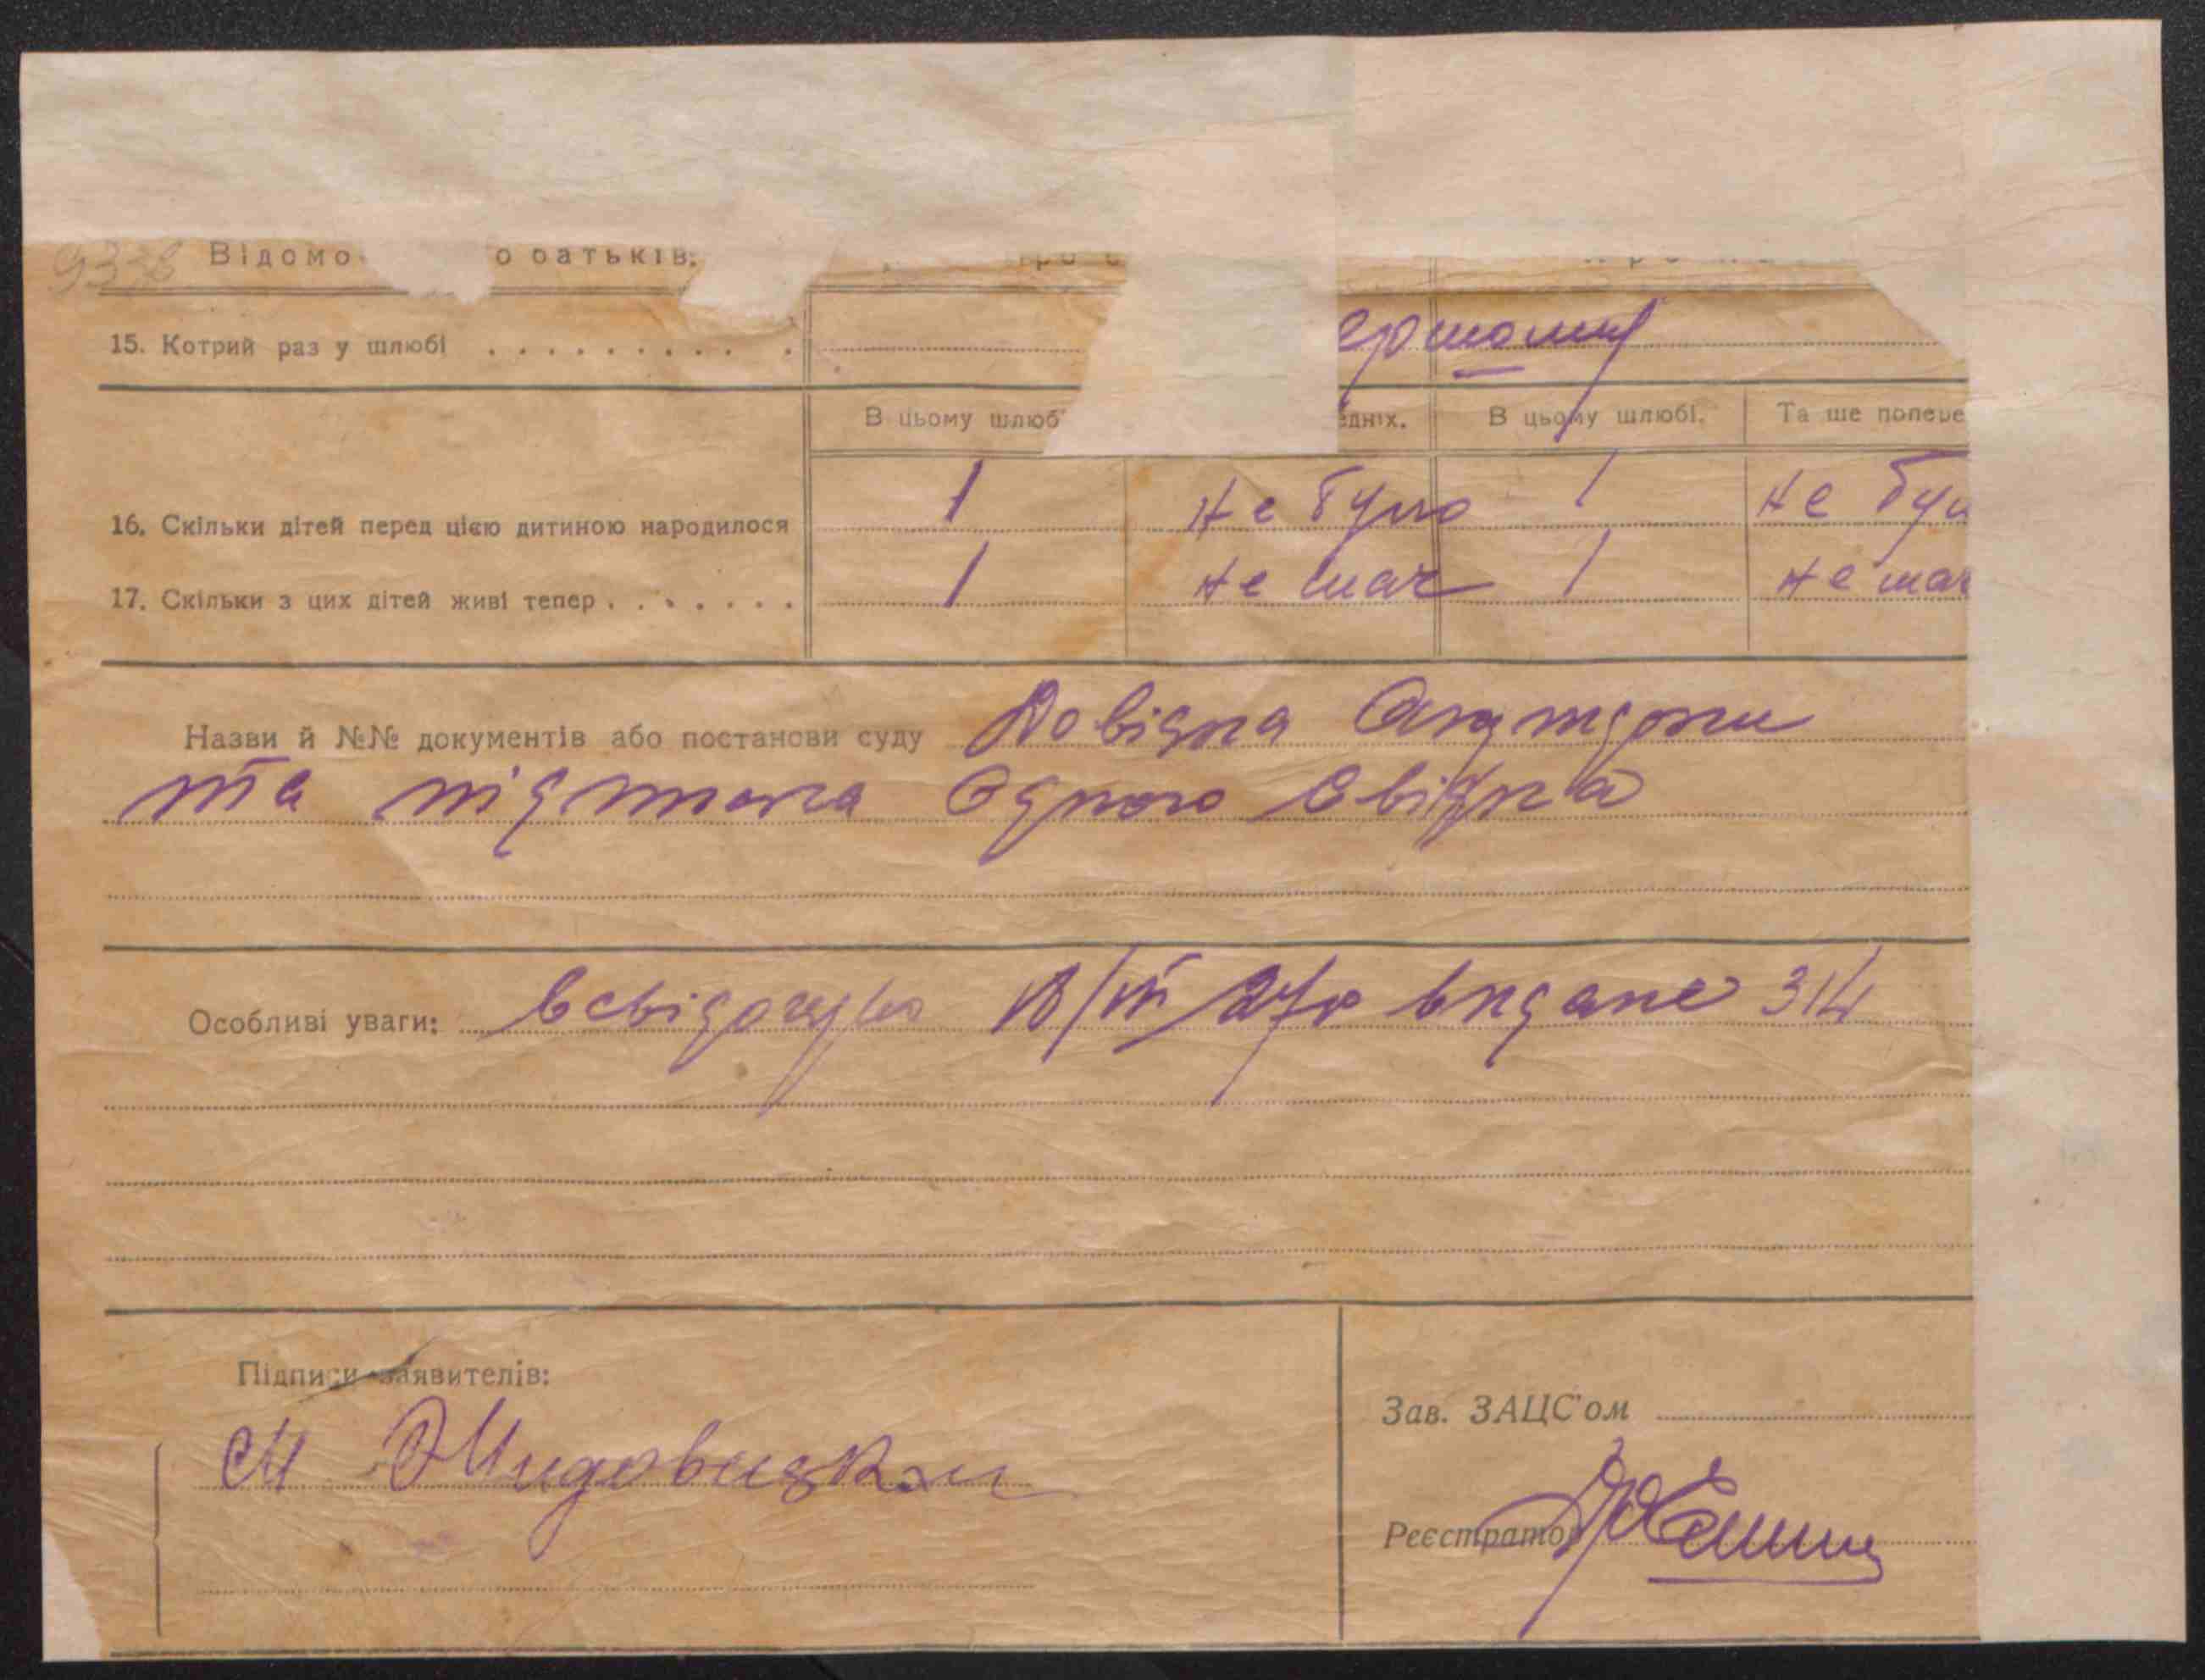 9338 Відомо о батьків:
15. Котрий раз у шлюбі
В цьому шлюб едніх. В цьому шлюбі. Та ще попере
16. Скільки дітей перед цією дитиною народилося 1 не було 1 не бул
17. Скільки з цих дітей живі тепер 1 не має 1 не має
Назви й №№ документів або постанови суду Довідка
та підписка одного свідка
Особливі уваги: 27р видане 314
Підписи заявителів:
Зав. ЗАЦС'ом
М
Реєстратор